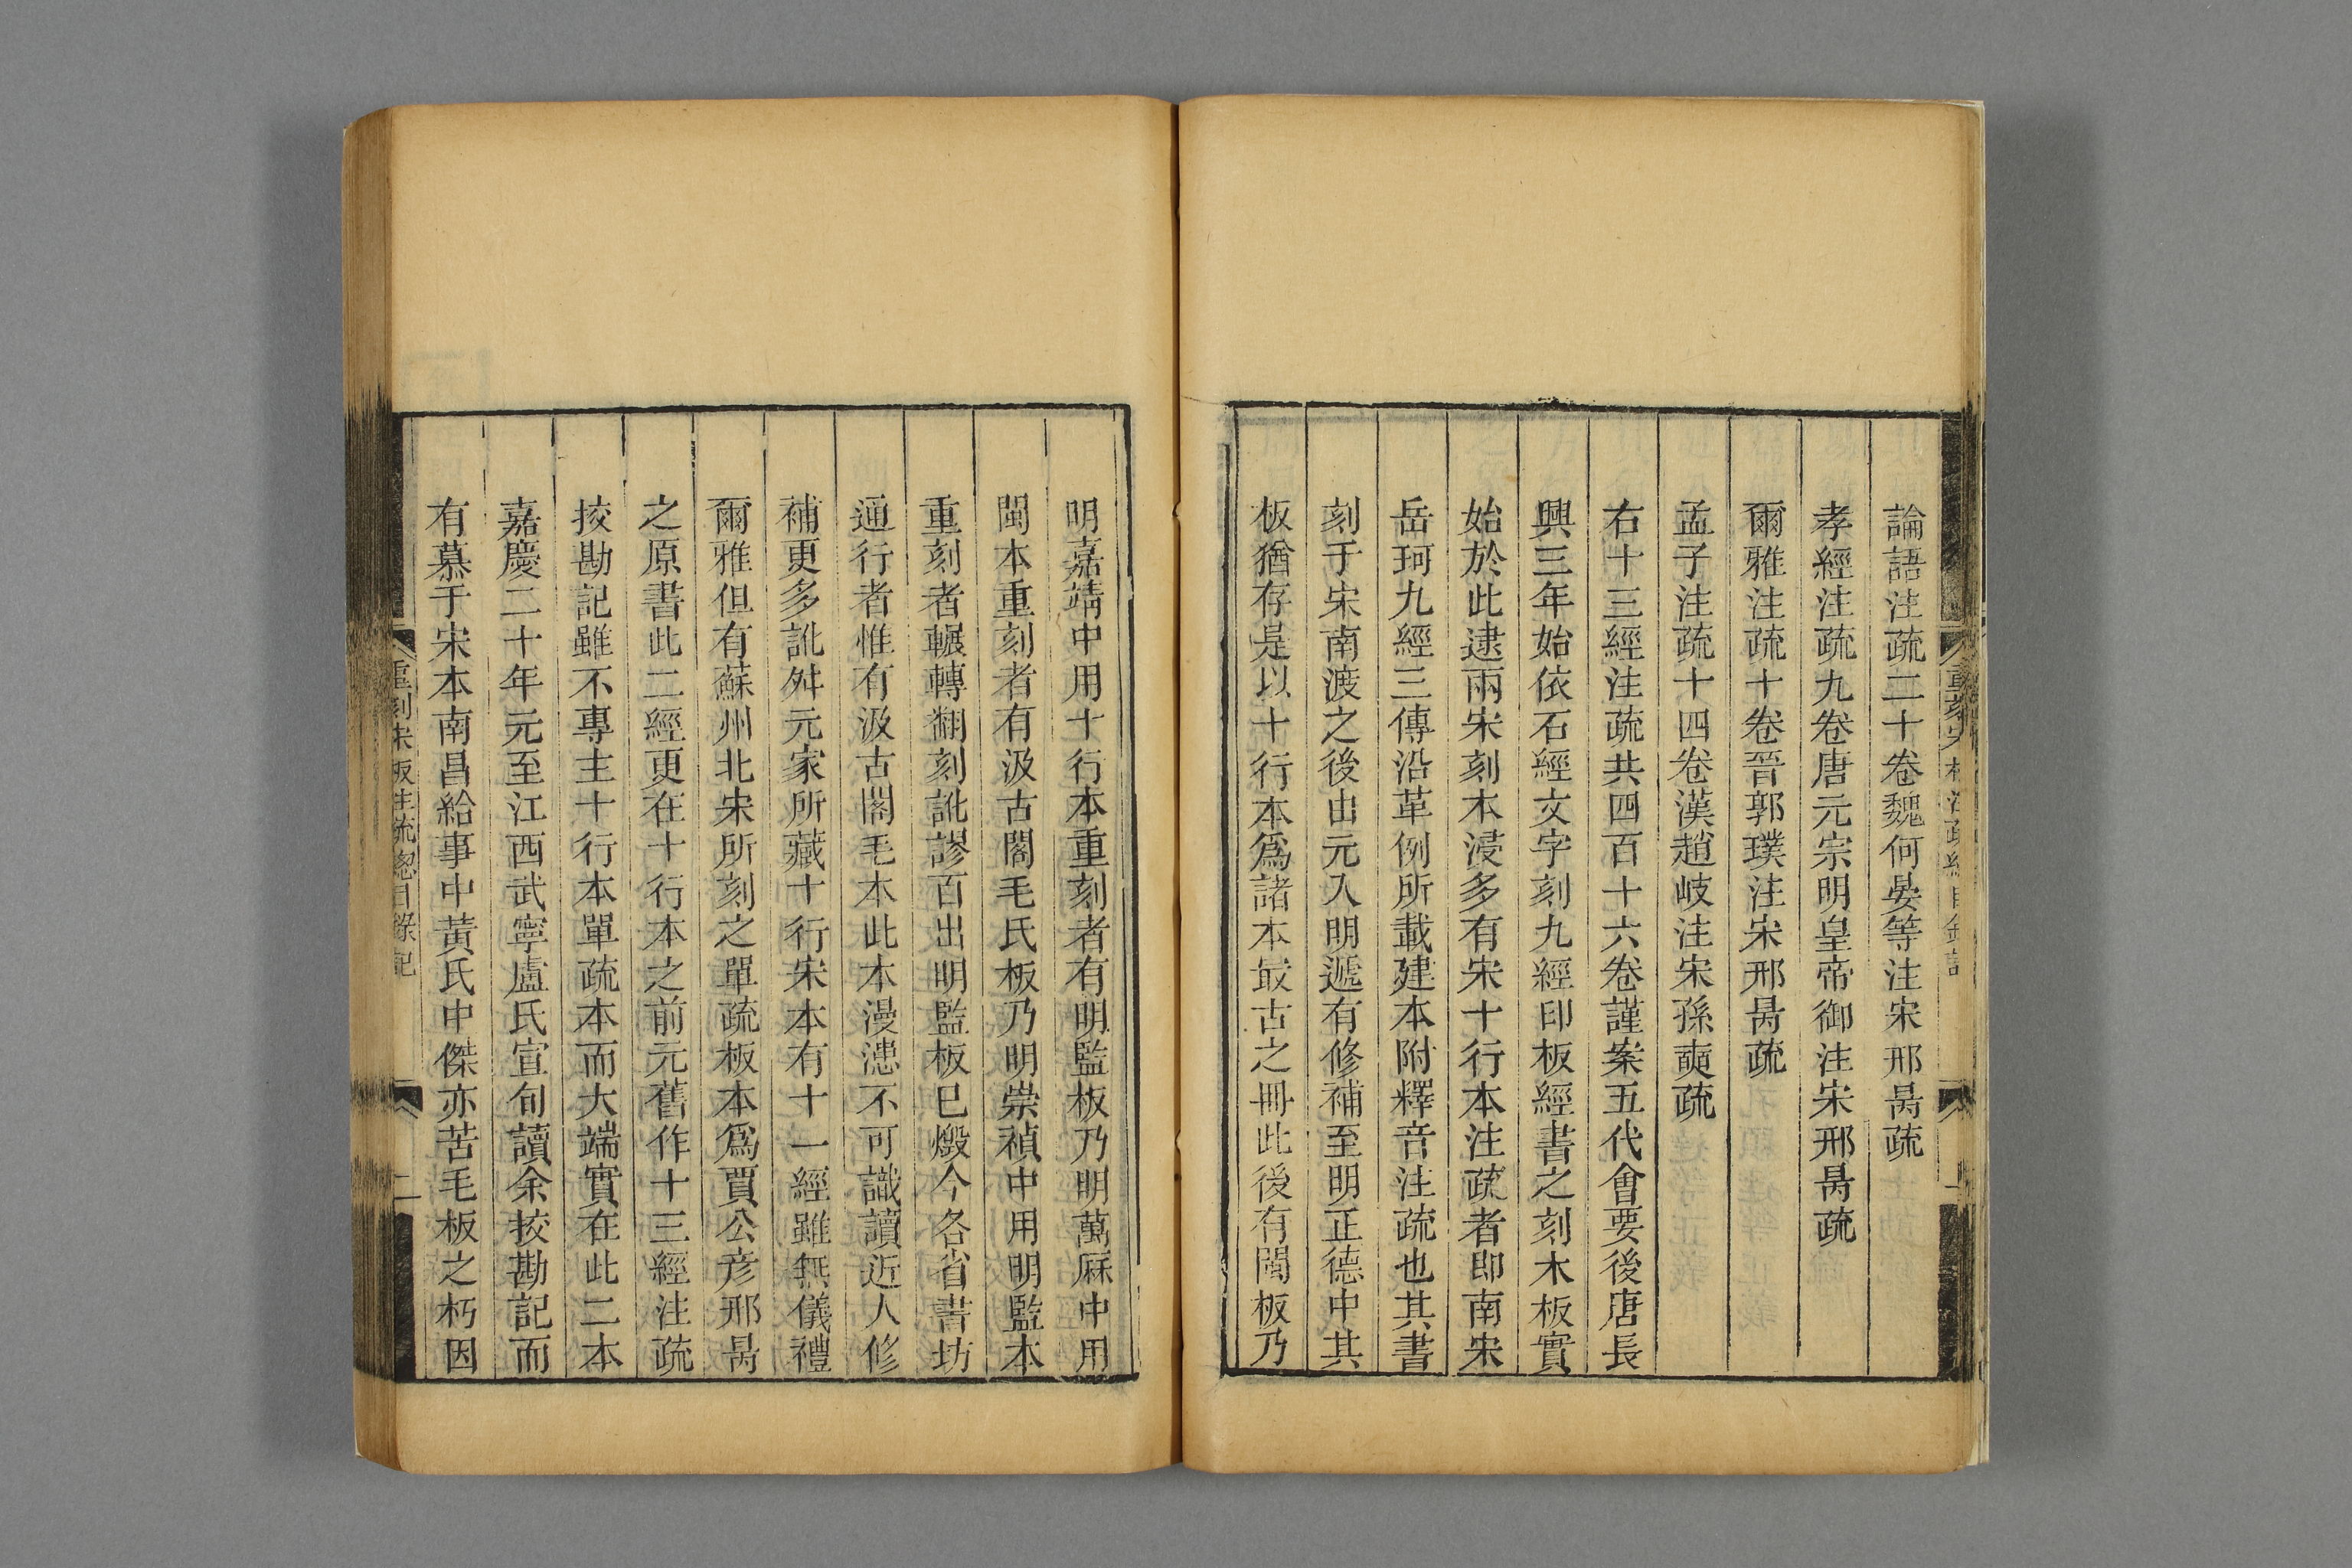 論語注疏二十卷魏何晏等注宋邢昺疏
孝經注疏九卷唐元宗明皇帝御注宋邢昺疏
爾雅注疏十卷晉郭璞注宋邢昺疏
孟子注疏十四卷漢趙岐注宋孫奭疏
右十三經注疏共四百十六卷謹案五代會要後唐長
興三年始依石經文字刻九經印板經書之刻木板實
始於此逮兩宋刻本浸多有宋十行本注疏者即南宋
岳珂九經三傳沿革例所載建本附釋音注疏也其書
刻于宋南渡之後由元入明遞有修補至明正德中其
板猶存是以十行本爲諸本最古之冊此後有閩板乃
明嘉靖中用十行本重刻者有明監板乃明萬厤中用
閩本重刻者有汲古閣毛氏板乃明崇禎中用明監本
重刻者輾轉翻刻訛謬百出明監板已燬今各省書坊
通行者惟有汲古閣毛本此本漫漶不可識讀近人修
補更多訛舛元家所藏十行宋本有十一經雖無儀禮
爾雅但有蘇州北宋所刻之單疏板本爲賈公彦邢昺
之原書此二經更在十行本之前元舊作十三經注疏
挍勘記雖不專主十行本單疏本而大端實在此二本
嘉慶二十年元至江西武寧盧氏宣旬讀余挍勘記而
有慕于宋本南昌給事中黃氏中傑亦苦毛板之朽因
重刻宋板注疏總目錄記
二